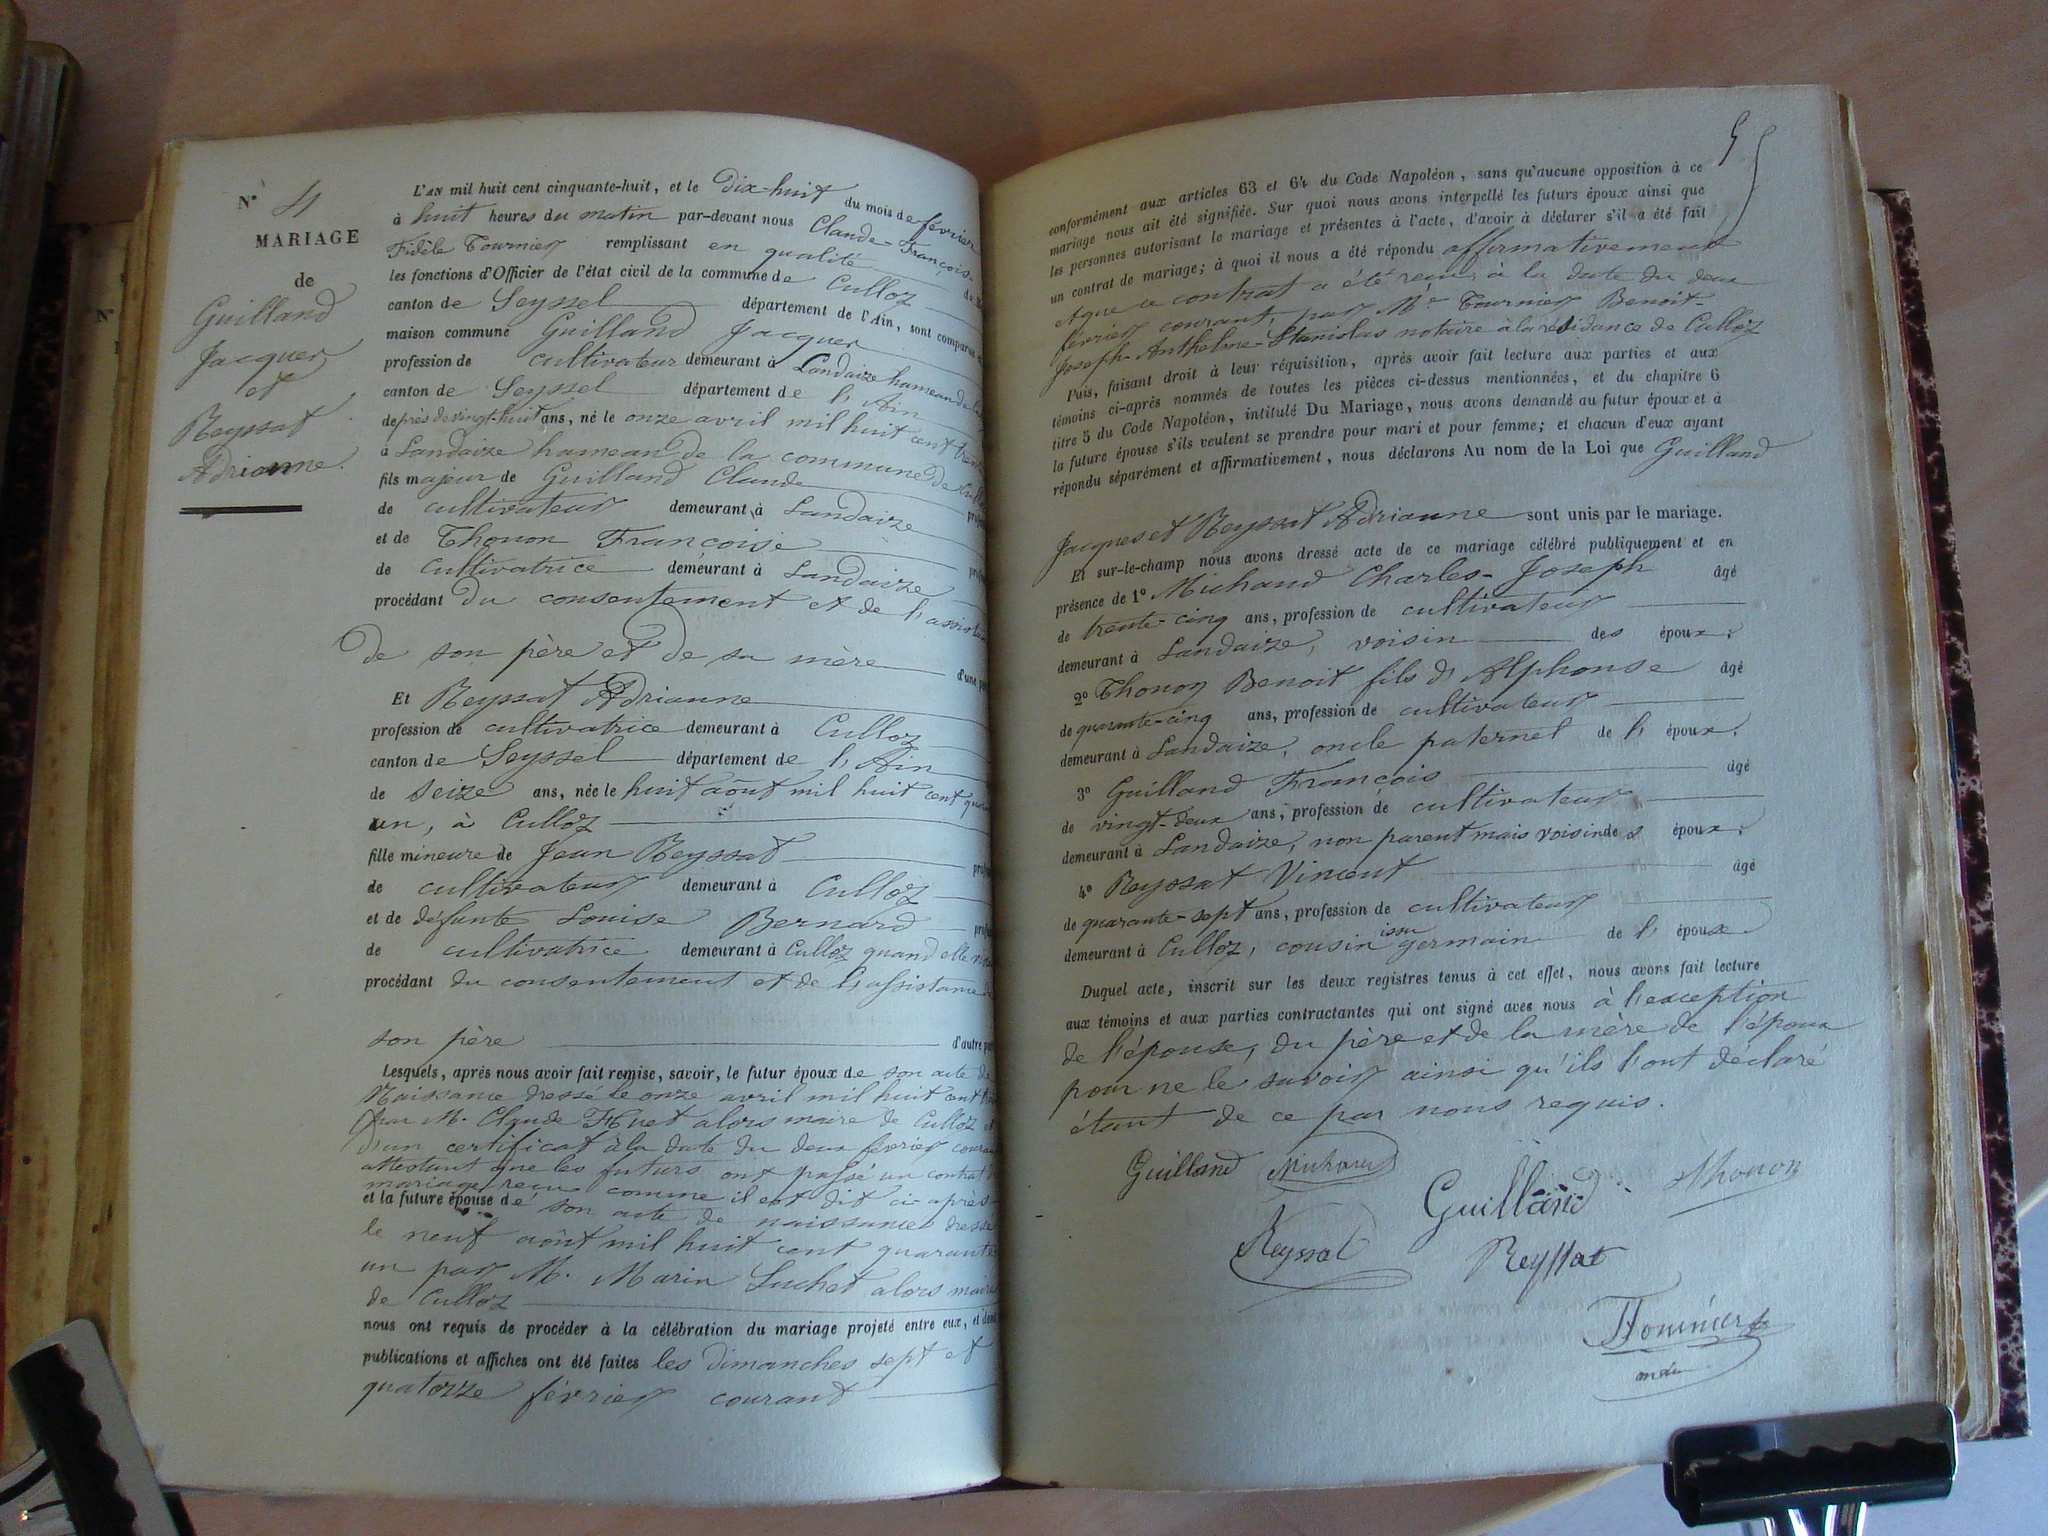 N° 4
MARIAGE
de
Guilland
Jacques
et
Reyssat
Adrianne.
L'AN mil huit cent cinquante-huit, et le Dix-huit du mois de février
à huit heures du matin par-devant nous Claude-François-
Fidèle Tournier remplissant en qualité
les fonctions d'Officier de l'état civil de la commune de Culloz
canton de Seyssel département de l'Ain, sont comparus
maison commune Guilland Jacques
profession de cultivateur demeurant à Landaize hameau de
canton de Seyssel département de l'Ain
de près de vingt-huit ans, né le onze avril mil huit cent trente
à Landaize hameau de la commune de Culloz
fils majeur de Guilland Claude
de cultivateur demeurant à Landaize
et de Thonon Françoise
de cultivatrice demeurant à Landaize
procédant du consentement et de l'assistance
de son père et de sa mère d'une part
Et Reyssat Adrianne
profession de cultivatrice demeurant à Culloz
canton de Seyssel département de l'Ain
de seize ans, née le huit août mil huit cent quarante
un, à Culloz
fille mineure de Jean Reyssat
de cultivateur demeurant à Culloz
et de défunte Louise Bernard
de cultivatrice demeurant à Culloz quand elle
procédant du consentement et de l'assistance de
son père d'autre part
Lesquels, après nous avoir fait remise, savoir, le futur époux de son acte de
Naissance dressé le onze avril mil huit cent
par M. Claude Huet alors maire de Culloz et
d'un certificat à la date du deux février courant
attestant que les futurs ont passé un contrat de
mariage reçu comme il est dit ci-après
et la future épouse de son acte de naissance dressé
le neuf août mil huit cent quarante
un par M. Marin Luchet alors maire
de Culloz
nous ont requis de procéder à la célébration du mariage projeté entre eux, et dont
publications et affiches ont été faites les dimanches sept et
quatorze février courant
5
conformément aux articles 63 et 64 du Code Napoléon, sans qu'aucune opposition à ce
mariage nous ait été signifiée. Sur quoi nous avons interpellé les futurs époux ainsi que
les personnes autorisant le mariage et présentes à l'acte, d'avoir à déclarer s'il a été fait
un contrat de mariage; à quoi il nous a été répondu affirmativement
et que ce contrat a été reçu à la date du deux
février courant, par Me Tournier Benoit-
Joseph-Anthelme-Stanislas notaire à la résidance de Culloz
Puis, faisant droit à leur réquisition, après avoir fait lecture aux parties et aux
témoins ci-après nommés de toutes les pièces ci-dessus mentionnées, et du chapitre 6
titre 5 du Code Napoléon, intitulé Du Mariage, nous avons demandé au futur époux et à
la future épouse s'ils veulent se prendre pour mari et pour femme; et chacun d'eux ayant
répondu séparément et affirmativement, nous déclarons Au nom de la Loi que Guilland
Jacques et Reyssat Adrianne sont unis par le mariage.
Et sur-le-champ nous avons dressé acte de ce mariage célébré publiquement et en
présence de 1° Michaud Charles-Joseph âgé
de trente-cinq ans, profession de cultivateur
demeurant à Landaize, voisin des époux.
2° Thonon Benoit fils d'Alphonse âgé
de quarante-cinq ans, profession de cultivateur
demeurant à Landaize, oncle paternel de l'époux.
3° Guilland François âgé
de vingt-deux ans, profession de cultivateur
demeurant à Landaize, non parent mais voisin des époux.
4° Reyssat Vincent âgé
de quarante-sept ans, profession de cultivateur
demeurant à Culloz, cousin issu germain de l'épouse.
Duquel acte, inscrit sur les deux registres tenus à cet effet, nous avons fait lecture
aux témoins et aux parties contractantes qui ont signé avec nous à l'exception
de l'épouse, du père et de la mère de l'époux
pour ne le savoir ainsi qu'ils l'ont déclaré
étant de ce par nous requis.
Guilland Michaud
Guilland Thonon
Reyssat Reyssat
Tournier